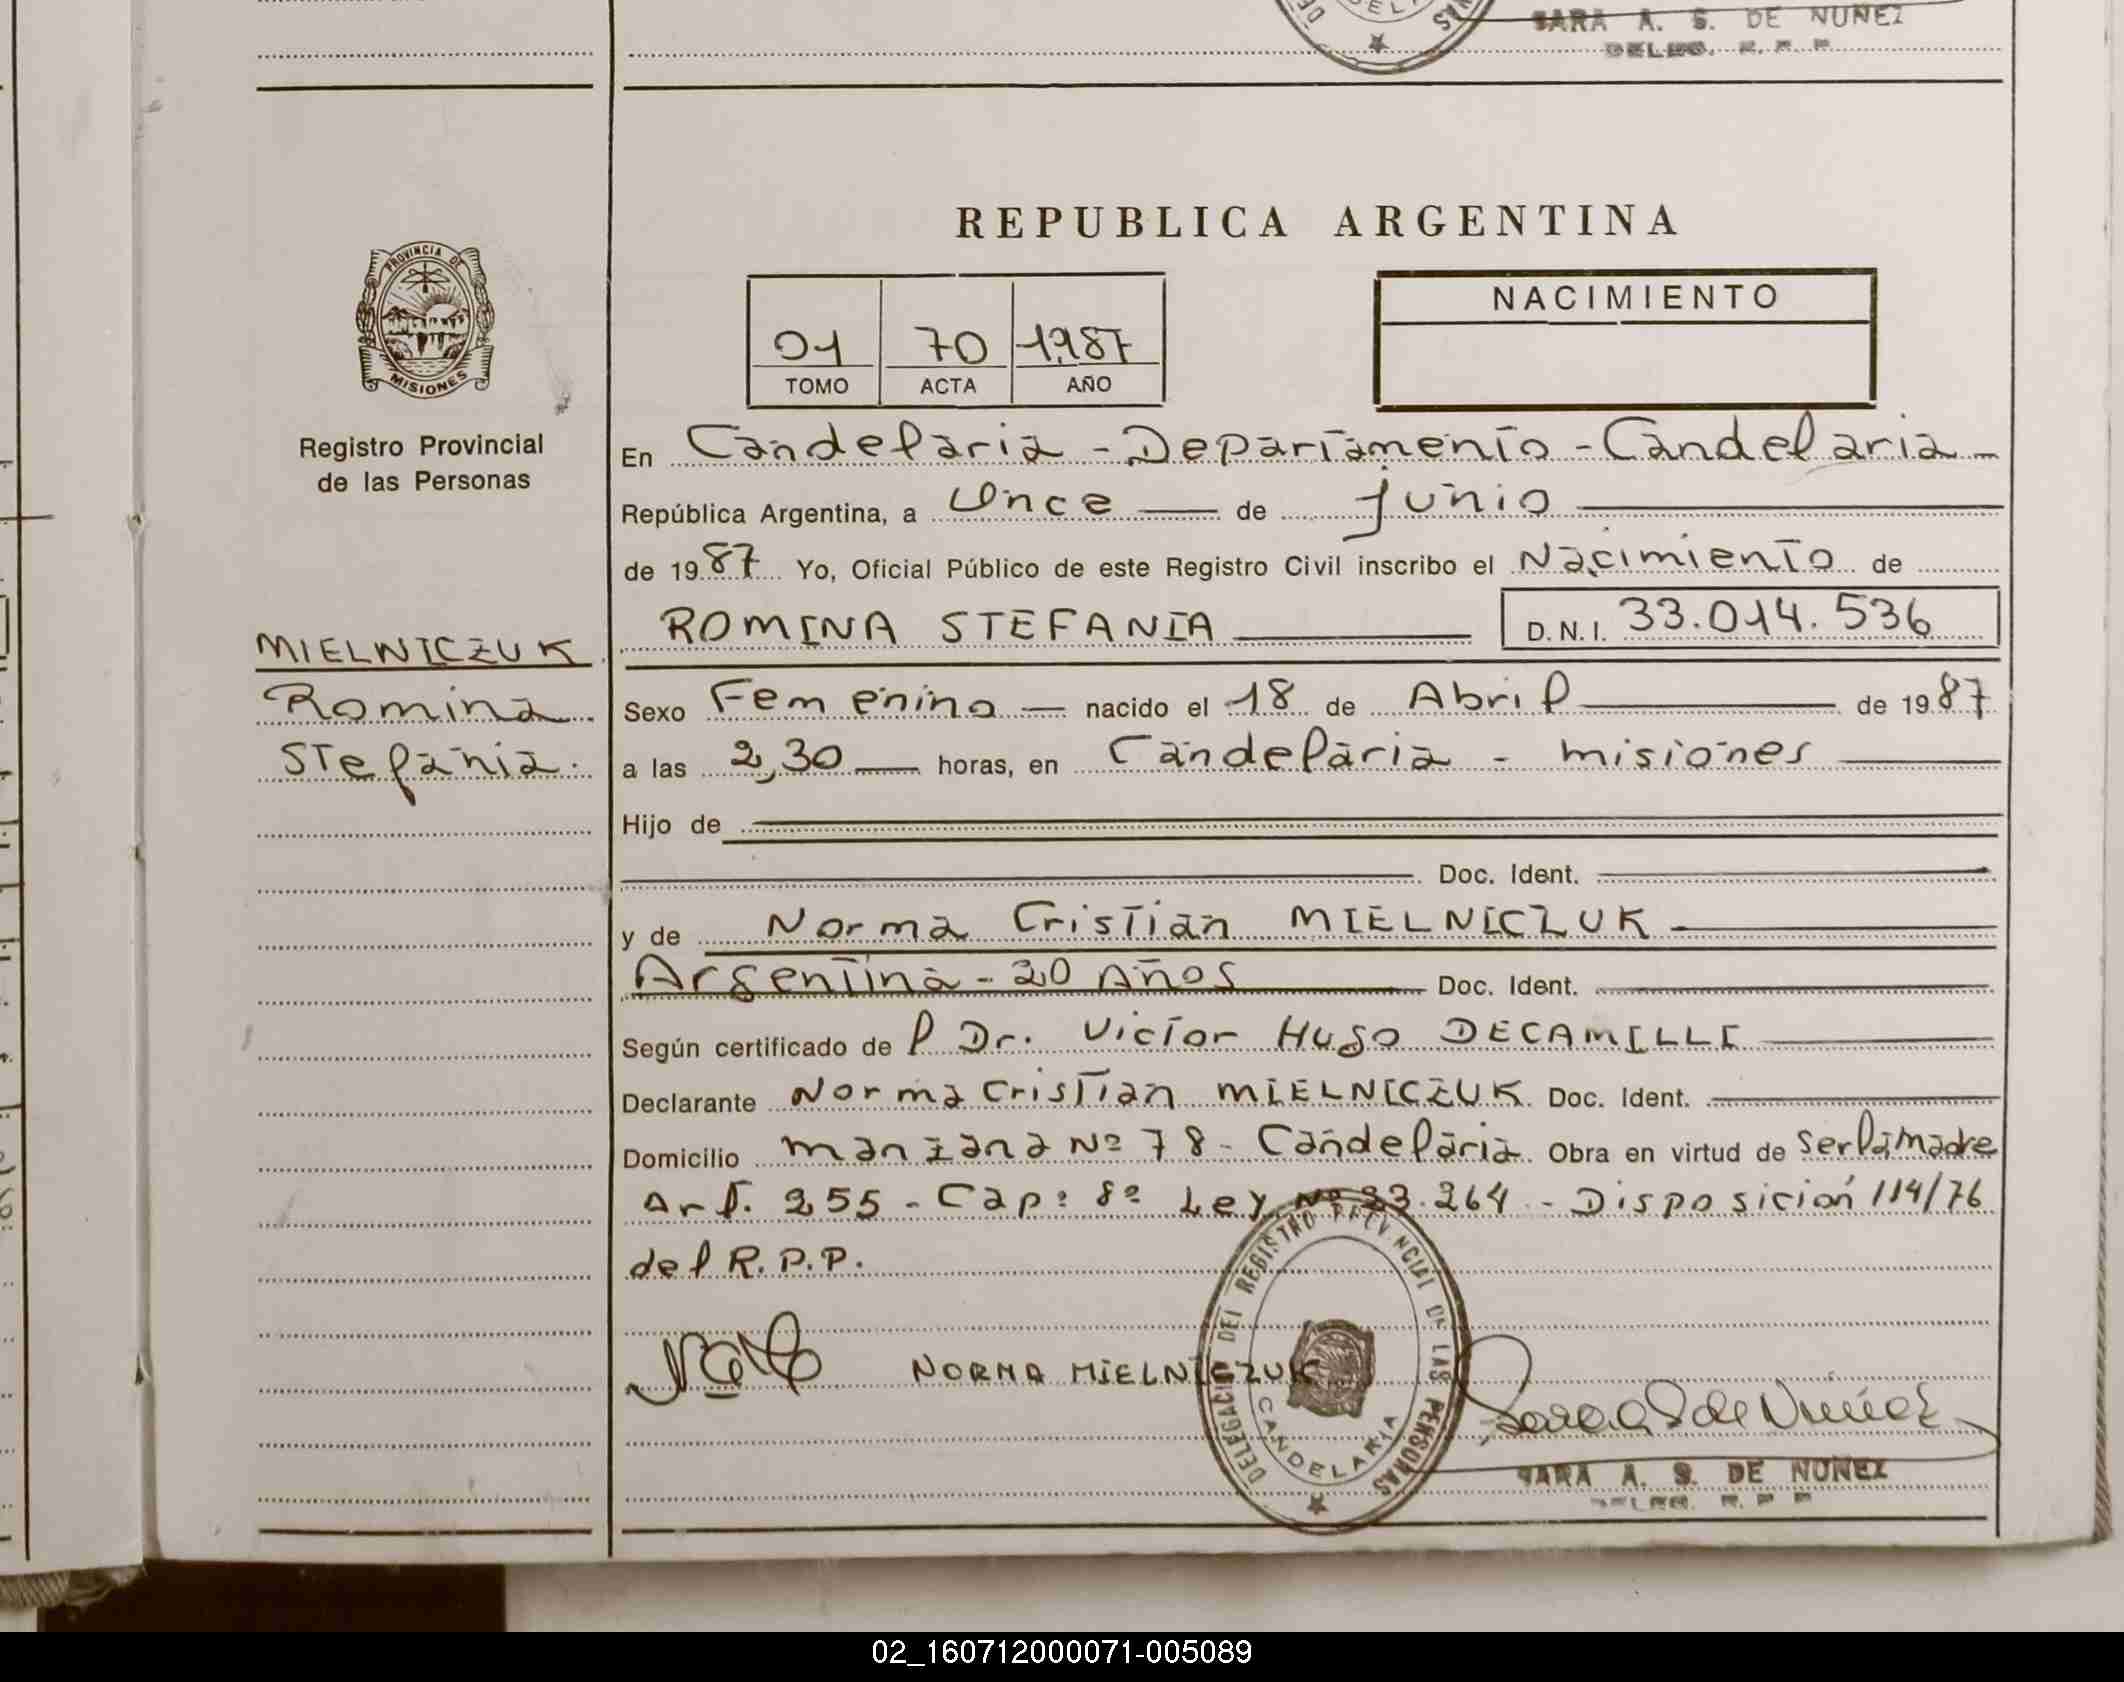 SARA A. S. DE NUÑEZ
DELEG. R. P. P.
REPUBLICA ARGENTINA
PROVINCIA DE
MISIONES
Registro Provincial
de las Personas
01 70 1987
TOMO ACTA AÑO
NACIMIENTO
En Candelaria - Departamento - Candelaria
República Argentina, a Once de Junio
de 1987 Yo, Oficial Público de este Registro Civil inscribo el Nacimiento de
ROMINA STEFANIA D.N.I. 33.014.536
MIELNICZUK
Romina
Stefania.
Sexo Femenino nacido el 18 de Abril de 1987
a las 2,30 horas, en Candelaria - misiones
Hijo de
Doc. Ident.
y de Norma Cristian MIELNICZUK
Argentina - 20 Años Doc. Ident.
Según certificado del Dr. Victor Hugo DECAMILLI
Declarante Norma Cristian MIELNICZUK Doc. Ident.
Domicilio manzana Nº 78 - Candelaria Obra en virtud de Ser la madre
Art. 255 - Cap: 8º Ley Nº 23.264 - Disposición 114/76
del R.P.P.
NORMA MIELNICZUK
DELEGACION DEL REGISTRO PROVINCIAL DE LAS PERSONAS
CANDELARIA
Sara S de Nuñez
SARA A. S. DE NUÑEZ
DELEG. R. P. P.
02_160712000071-005089